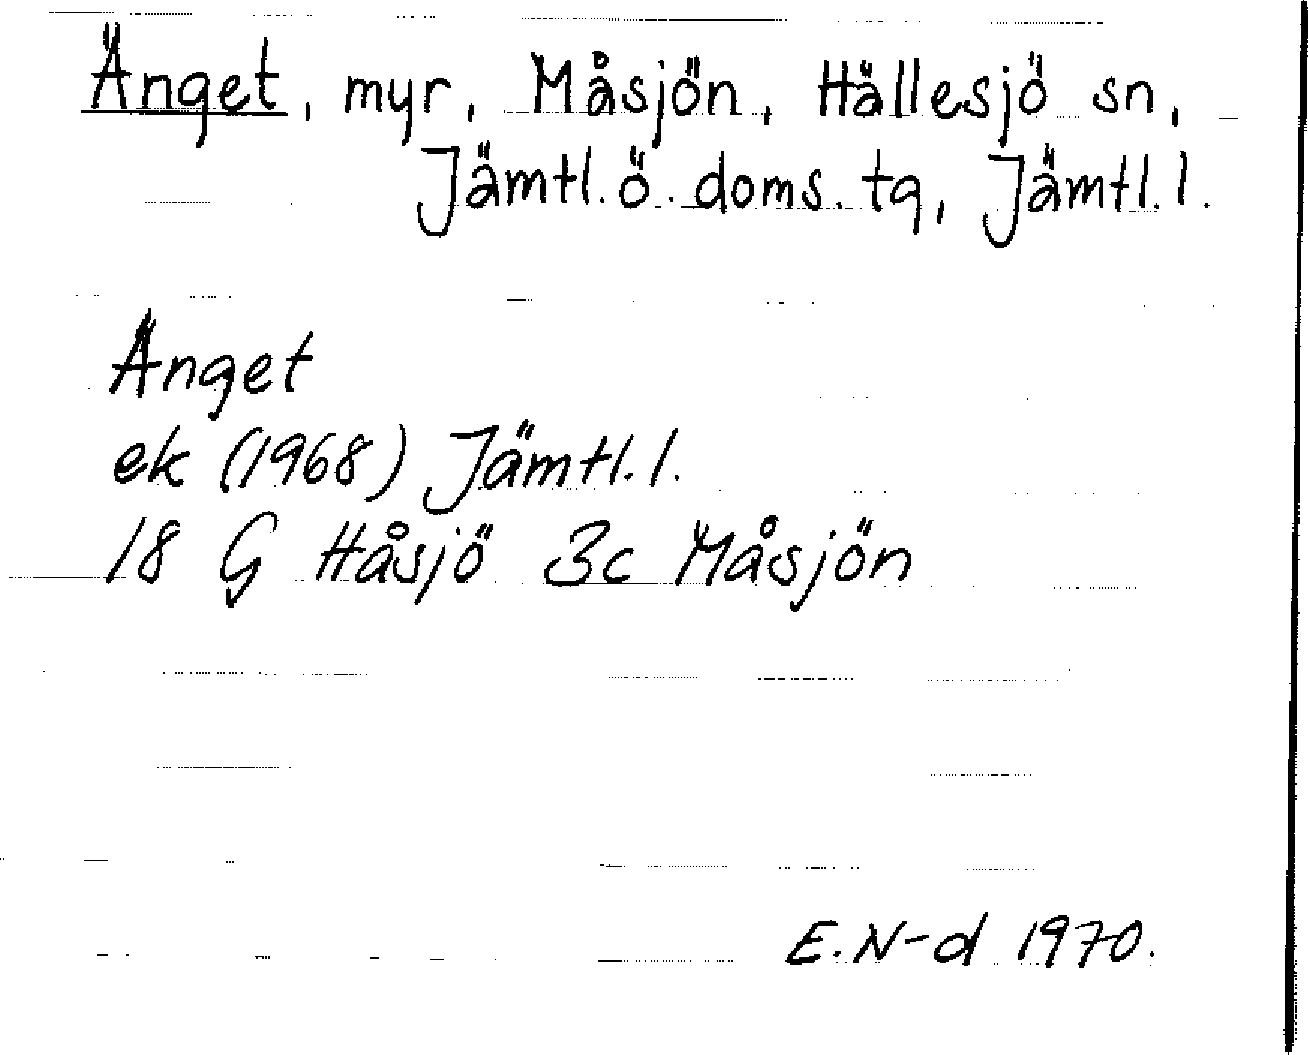 Änget, myr, Måsjön, Hällesjö sn,
Jämtl. ö. doms. tg, Jämtl. l.
Änget
ek (1968) Jämtl. l.
18 G Håsjö 3c Måsjön
E. N-d 1970.